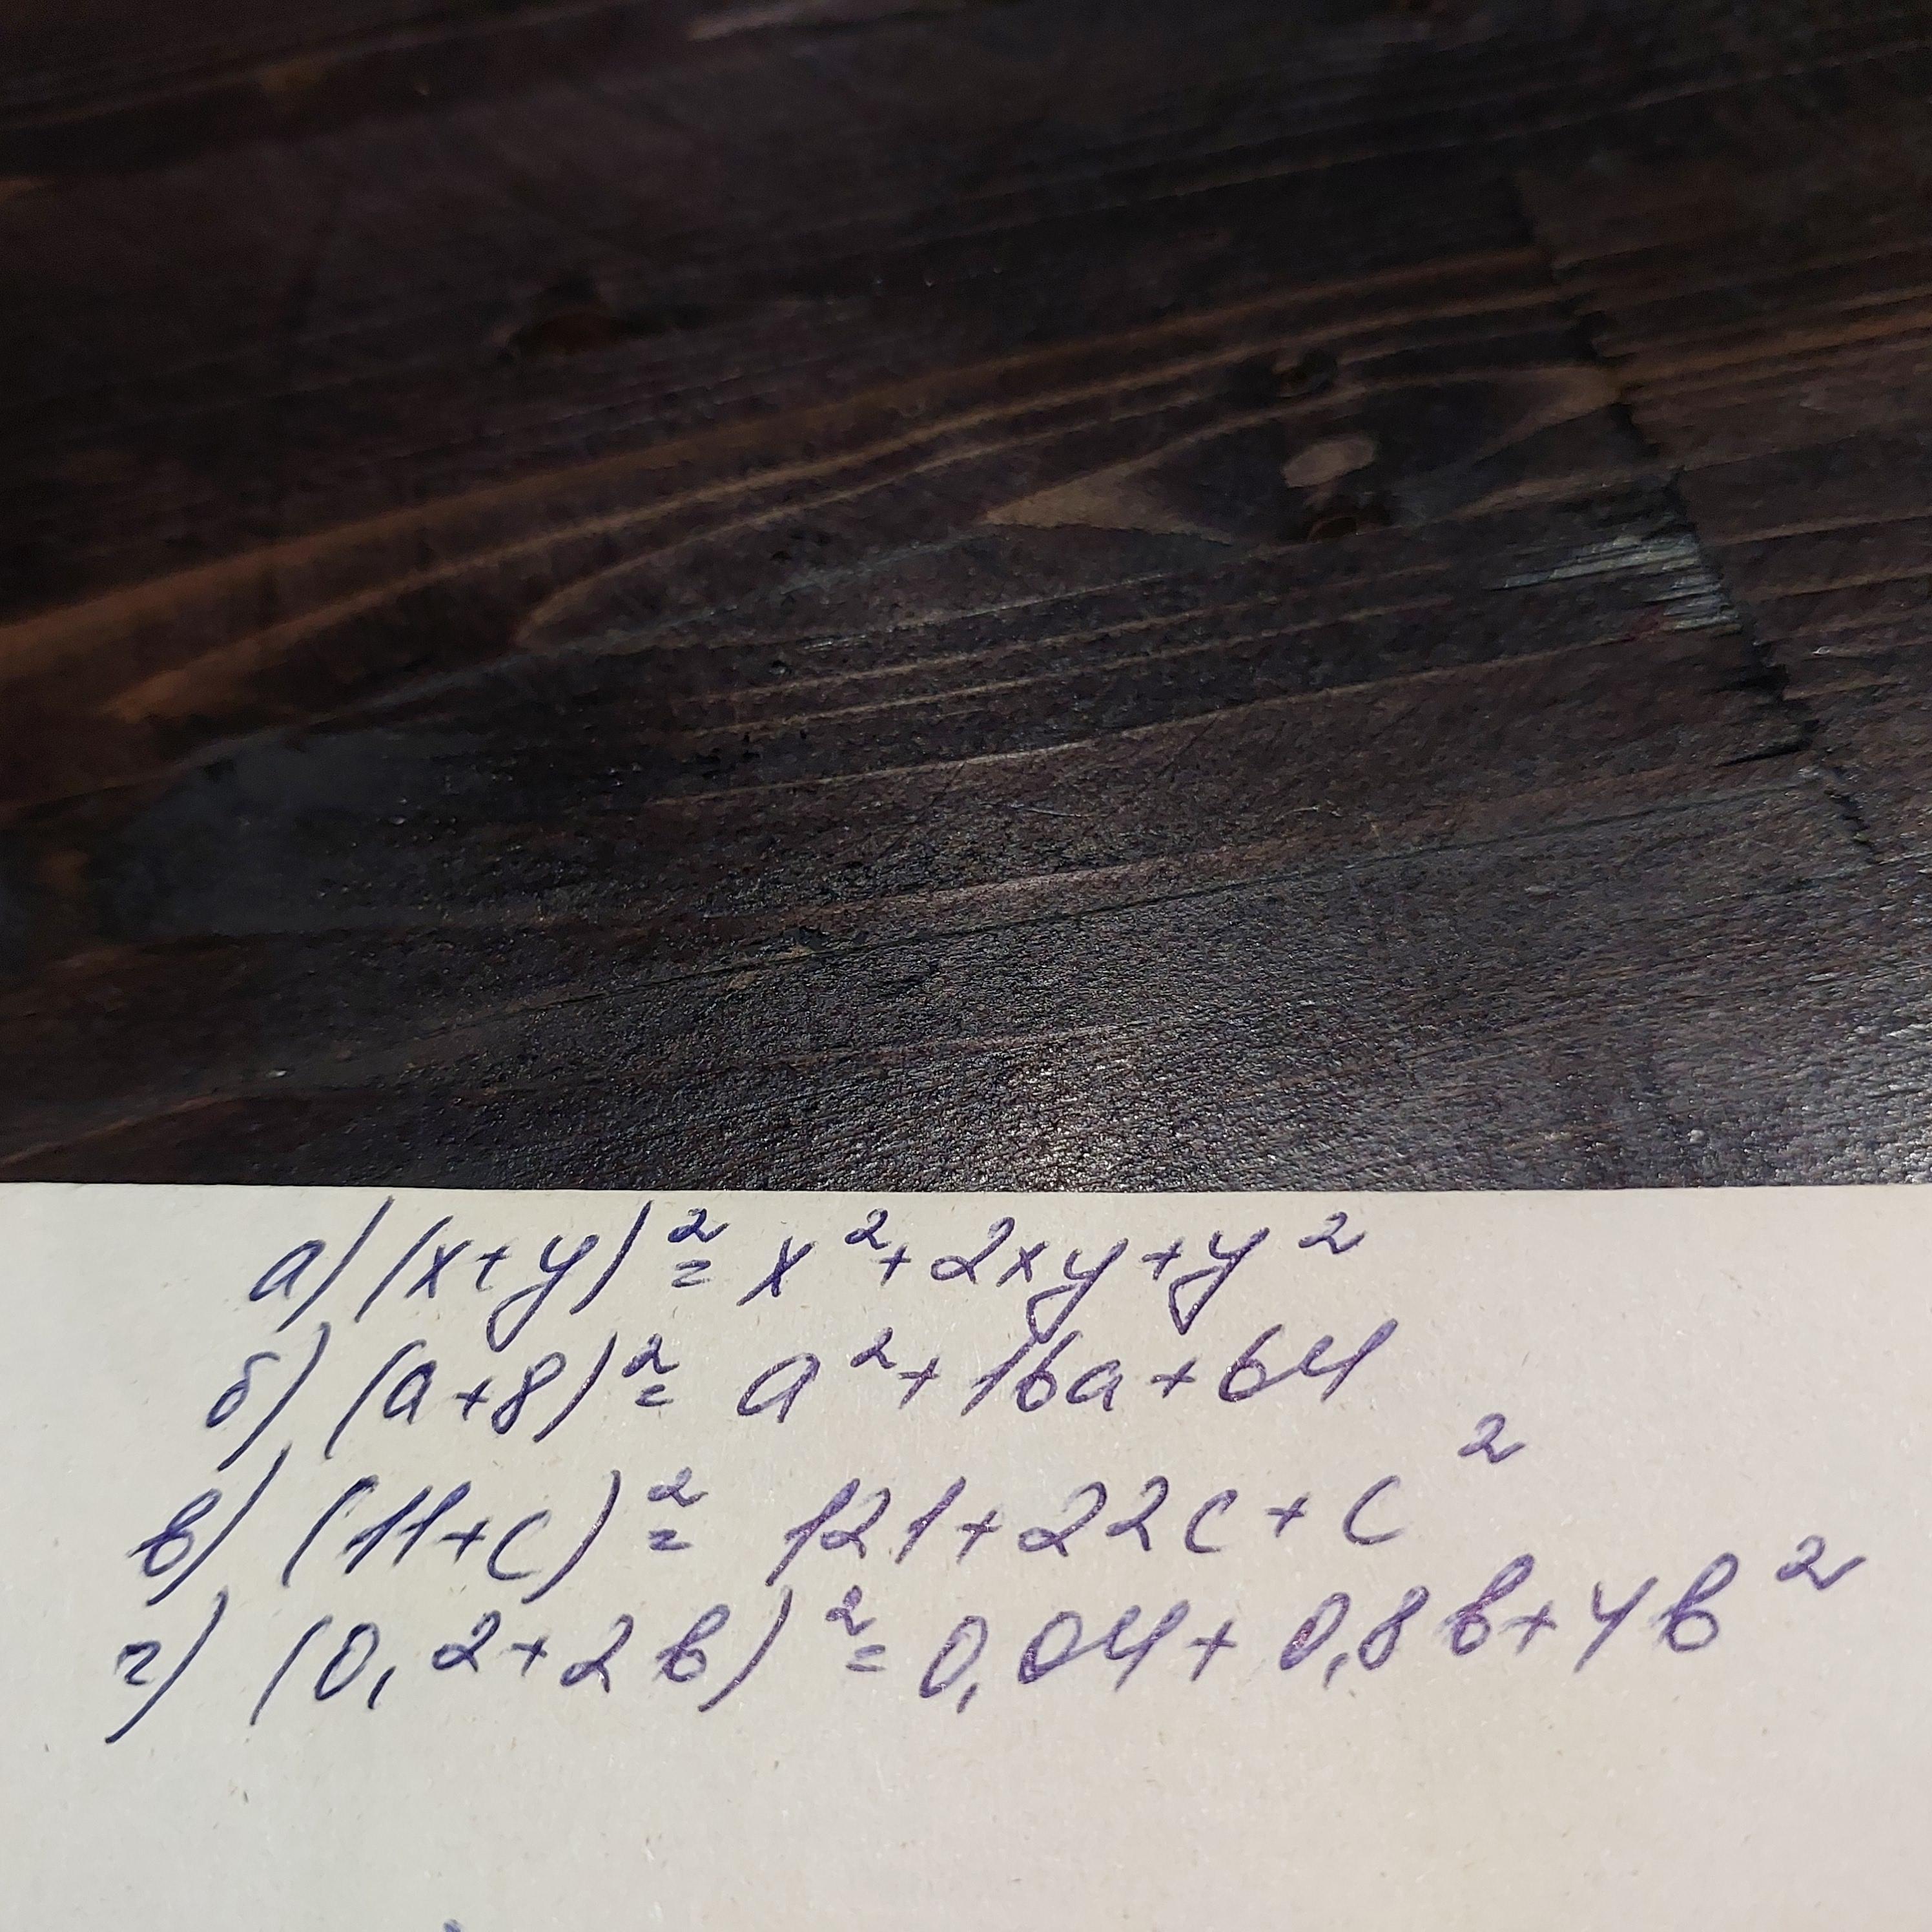 а) (x+y)²= x²+2xy+y²
б) (a+8)²= a²+16a+64
в) (11+c)²= 121+22c+c²
г) (0,2+2b)²= 0,04+0,8b+4b²